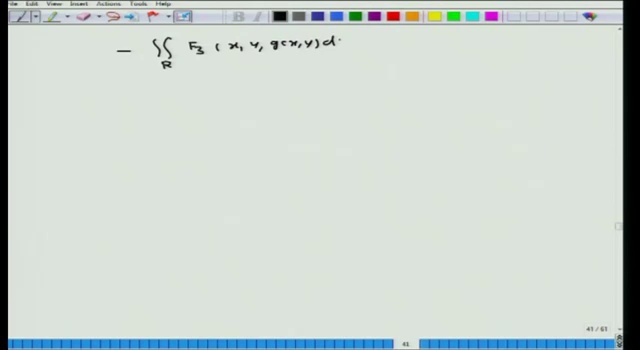 File Edit View Insert Actions Tools Help
— ∬_R F₃ (x, y, g(x,y) d
41 / 61
41